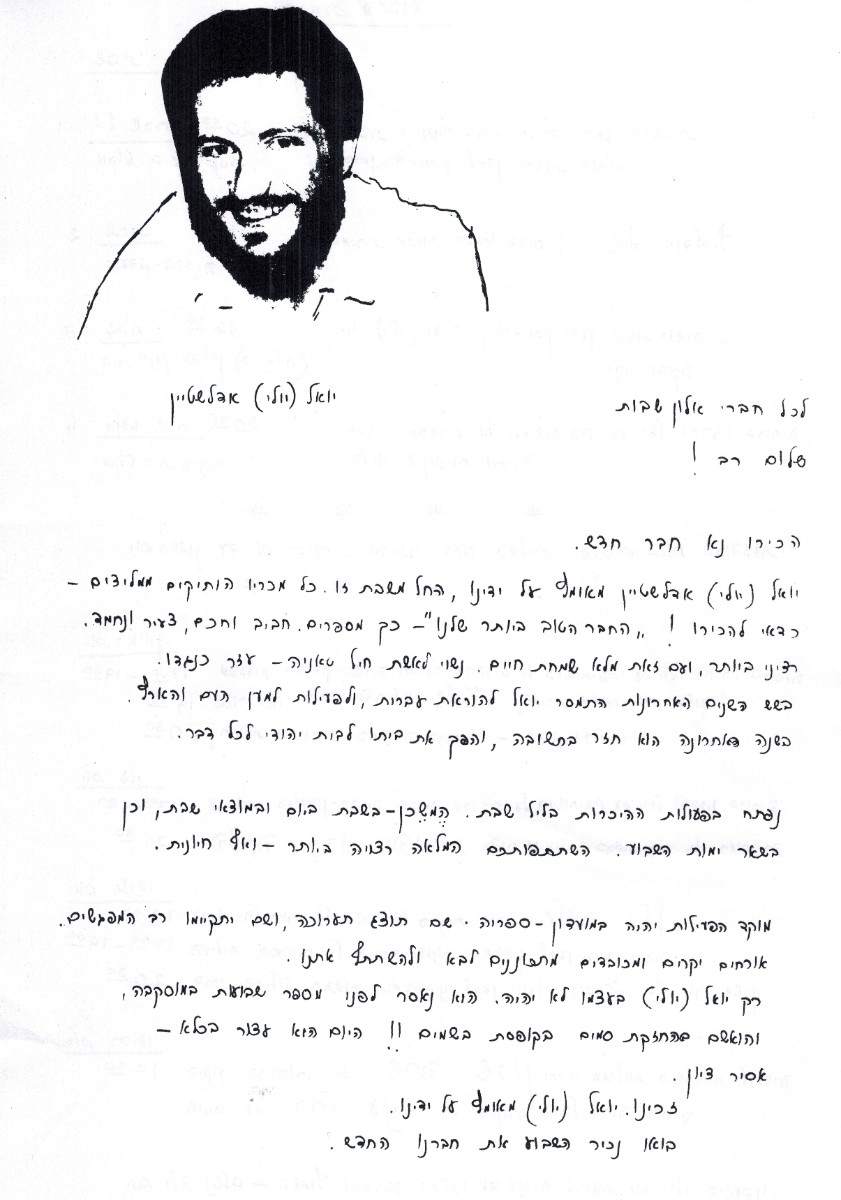 יואל (יולי) אדלשטיין
לכל חברי אלון שבות
שלום רב !
הכירו נא חבר חדש.
יואל (יולי) אדלשטיין מאומץ על ידינו, החל משבת זו. כל מכריו הותיקים ממליצים –
כדאי להכירו ! "החבר הטוב ביותר שלנו" – כך מספרים. חביב וחכם, צעיר ונחמד.
רציני ביותר, ועם זאת מלא שמחת חיים. נשוי לאשת חיל טאניה – עזר כנגדו.
בשש השנים האחרונות התמסר יואל להוראת עברית, ולפעילות למען העם והארץ.
בשנה האחרונה הוא חזר בתשובה, והפך את ביתו לבית יהודי לכל דבר.
נפתח בפעולות ההיכרות בליל שבת. המשכן – בשבת ביום ובמוצאי שבת, וכן
בשאר ימות השבוע. השתתפותכם המלאה רצויה ביותר – ואף חיונית.
מוקד הפעילות יהיה במועדון - ספריה. שם תוצג תערוכה, ושם יתקיימו רב המפגשים.
אורחים יקרים ומכובדים מתכוננים לבא ולהשתתף אתנו.
רק יואל (יולי) בעצמו לא יהיה. הוא נאסר לפני מספר שבועות במוסקבה,
והואשם בהחזקת סמים בקופסת בשמים !! היום הוא עצור בכלא –
אסיר ציון.
זכינו. יואל (יולי) מאומץ על ידינו.
בואו נכיר השבוע את חברנו החדש.